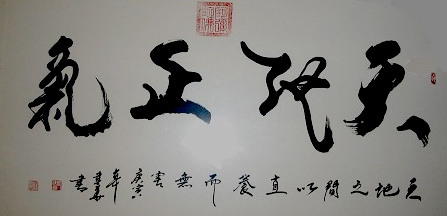 天地正氣
天地之間以直養而無害 庚寅年 書